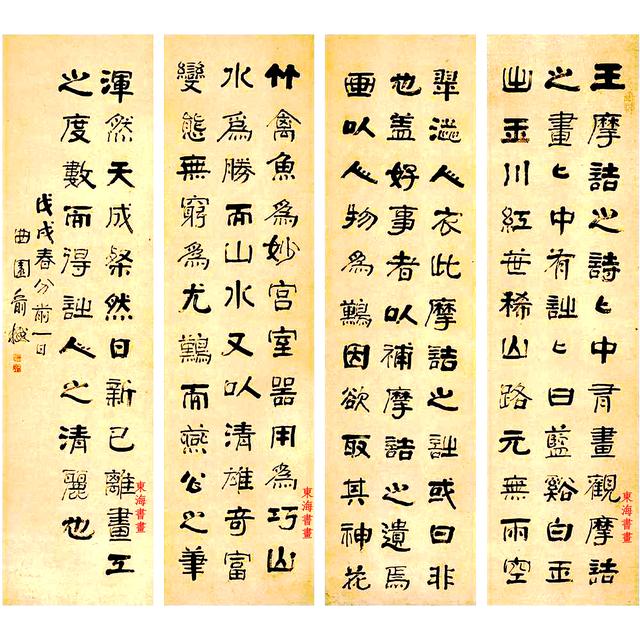 王摩詰之詩〻中有畫觀摩詰
之畫〻中有詩〻曰藍谿白玉
出玉川紅葉稀山路元無雨空
翠溼人衣此摩詰之詩或曰非
也蓋好事者以補摩詰之遺焉
畫以人物為難因欲取其神花
竹禽魚為妙宮室器用為巧山
水為勝而山水又以清雄奇富
變態無窮為尤難而燕公之筆
渾然天成粲然日新已離畫工
之度數而得詩人之清麗也
戊戌春分前一日
曲園俞樾
東海書畫
東海書畫
東海書畫